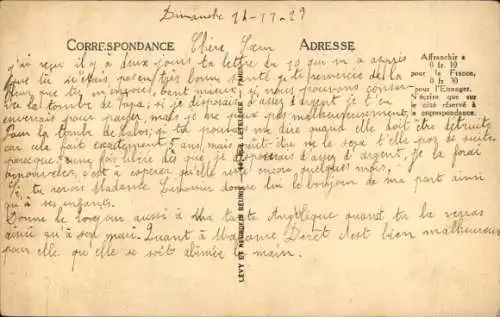 Dimanche 24-11-29
CORRESPONDANCE Chère Sœur ADRESSE
j'ai reçu il y a deux jours ta lettre du 19 qui m'a appris
que tu n'étais pas en très bonne santé je te remercie de la
fleur que tu m'envoies, tant mieux si nous pouvons conser-
ver la tombe de Papa; si je disposais d'assez d'argent je t'en
enverrais pour payer, mais je ne peux pas malheureusement,
Pour la tombe de si tu pouvais me dire quand elle doit être détruite
car cela fait exactement 5 ans, mais peut-être ne le sera t'elle pas de suite
parceque une fois libéré dès que je disposerais d'assez d'argent, je la ferai
renouveler, c'est à espérer qu'elle reste encore quelques mois.
Si tu revois Madame donne lui le bonjour de ma part ainsi
qu'à ses enfants.
Donne le bonjour aussi à Ma tante Angélique quand tu la verras
ainsi qu'à son mari. Quant à Madame c'est bien malheureux
pour elle qu'elle se soit abîmée la main.
Affranchir à
0 fr. 10
pour la France,
0 fr. 30
pour l'Etranger.
N'écrire que sur
le côté réservé à
la correspondance.
LÉVY ET NEURDEIN RÉUNIS